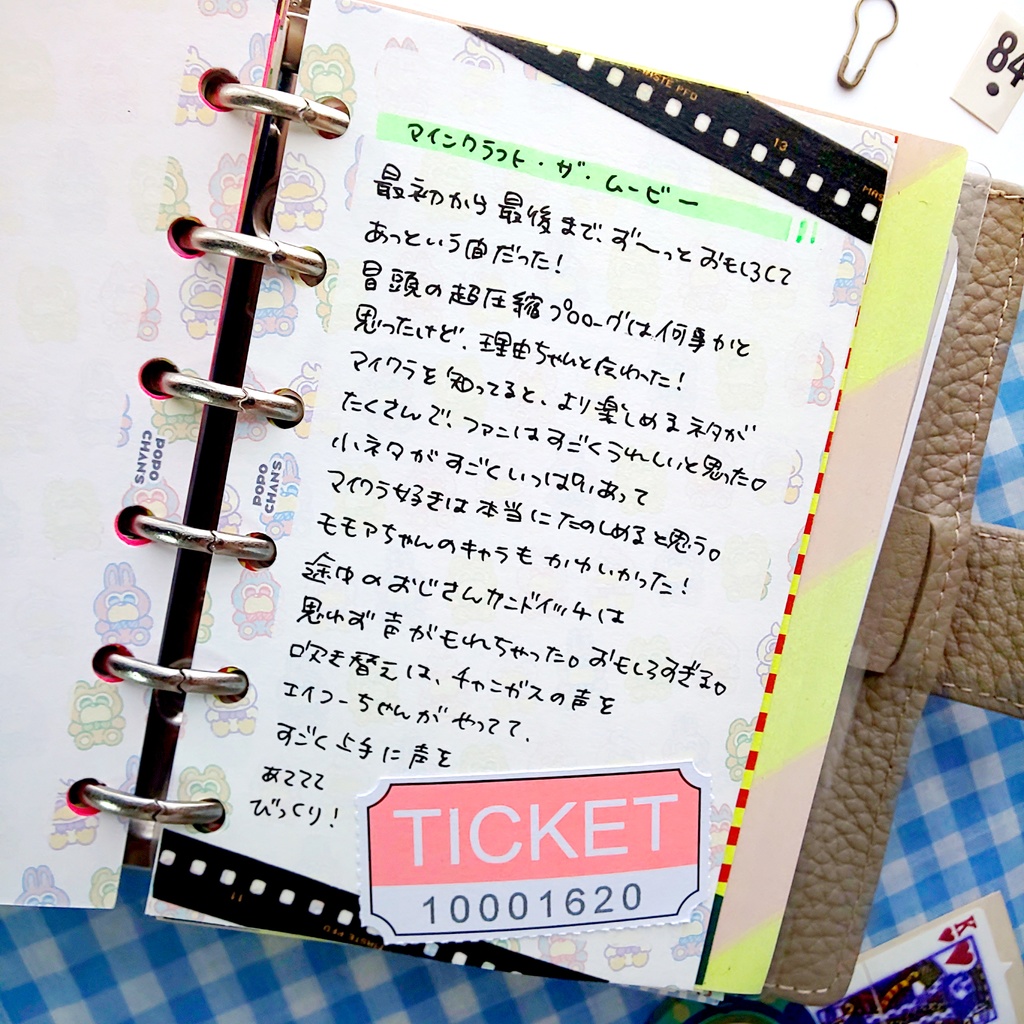 84
マインクラフト・ザ・ムービー
最初から最後まで、ず〜っとおもしろくて
あっという間だった!
冒頭の超圧縮プロローグは何事かと
思ったけど、理由ちゃんと伝わった!
マイクラを知ってると、より楽しめるネタが
たくさんで、ファンはすごくうれしいと思った。
小ネタがすごくいっぱいあって
マイクラ好きは本当にたのしめると思う。
モモアちゃんのキャラもかわいかった!
途中のおじさんサンドイッチは
思わず声がもれちゃった。おもしろすぎる。
吹き替えは、チャンガスの声を
エイコーちゃんがやってて、
すごく上手に声を
あててて
びっくり!
TICKET
10001620
POPO
CHANS
POPO
CHANS
MASTE PFO
13
MAS
11
MASTE PFO
K